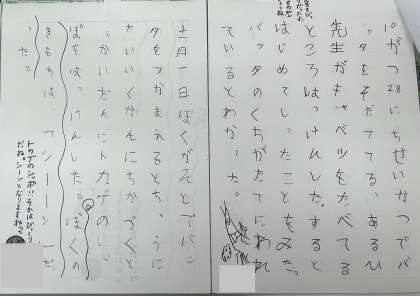 10がつ28にちせいかつでバ
ッタをそだててる、あるひ
先生がキャベツをたべてる
ところはっけんした。すると
はじめてしったことをみた。
バッタのくちがたてにわれ
ているとわかった。
十一月一日ぼくがそとでバッ
タをつかまえるとちゅうに
たいいくかんにちかづくと
、かいだんにトカゲのしっ
ぽをはっけんした。ぼくの
きもちは、「シーーン」だ
った。
トカゲのシッポ!!それはびっくり
だね。シーンとなりますね